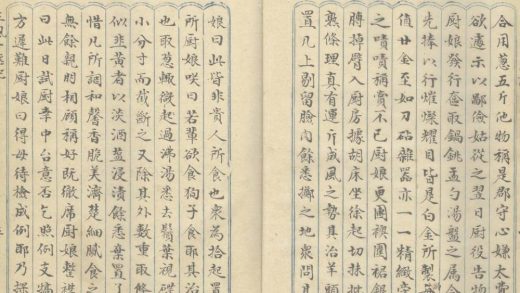 合用蔥五斤他物稱是郡守心嫌太費
欲遽示以鄙儉姑從之翌日厨役告物
厨娘發行奩取鍋銚盂勺湯盤之属令
先捧以行熣燦耀目皆是白金所製
值廿金至如刀砧雜器亦一一精緻
之嘖嘖稱賞不已厨娘更圍襖裙銀
膊掉臂入厨房據胡床坐徐起切抹批
熟條理真有運斤成風之勢其治羊頭
置几上剔留臉肉餘悉擲之地衆問其
娘曰此皆非貴人所食也衆為拾起置
所厨娘咲曰若輩欲食狗子食耶其治
也取蔥輙微起過沸湯悉去鬚葉視碟
小分寸而截斷之又除其外數重取條
似韭黃者以淡酒鹽浸漬餘悉棄置了
惜凡所調和馨香脆美濟楚細膩食之
無餘親朋相顧稱好既徹席厨娘整襟
曰此日試厨幸中台意否乞照例支犒
方遲難厨娘曰得毋待檢成例耶乃探